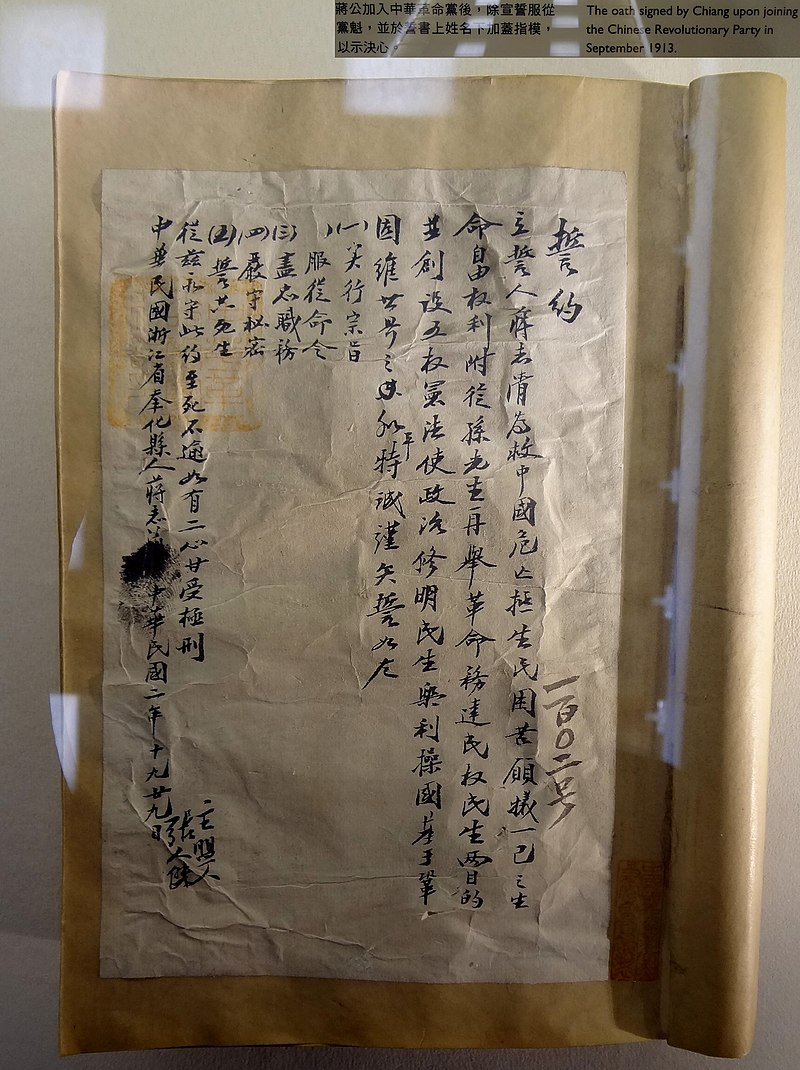 蔣公加入中華革命黨後，除宣誓服從
黨魁，並於誓書上姓名下加蓋指模，
以示決心。
The oath signed by Chiang upon joining
the Chinese Revolutionary Party in
September 1913.
誓約
一百〇二号
立誓人蔣志清為救中國危亡拯生民困苦願犧一己之生
命自由权利附從孫先生再舉革命務達民权民生兩目的
並創設五权憲法使政治修明民生樂利操國基于鞏
固維世界之和平特誠謹矢誓如左
(一)实行宗旨
服從命令
(三)盡忠職務
(四)嚴守秘密
(五)誓共死生
從茲永守此約至死不逾如有二心甘受極刑
中華民國浙江省奉化縣人蔣志 中華民國二年十九廿九日
主盟人
張人傑